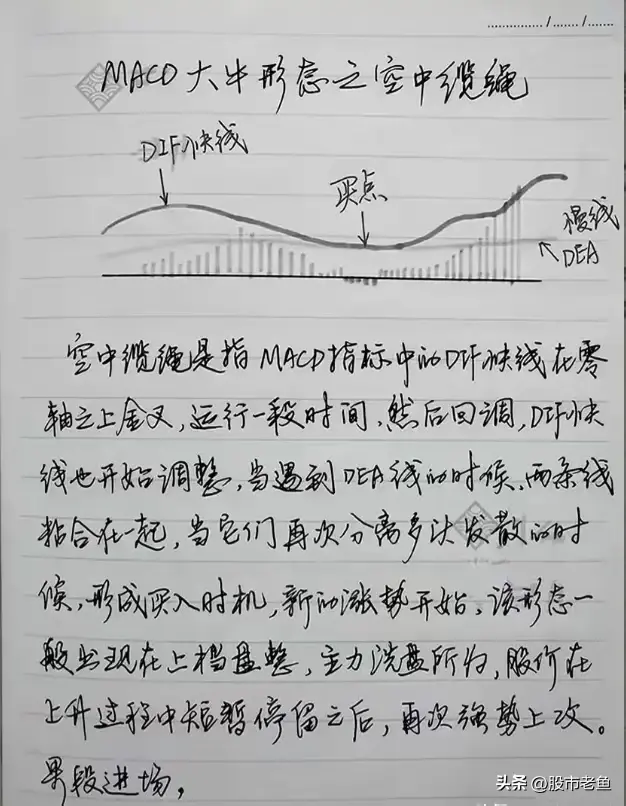 ....../....../......
MACD大牛形态之空中缆绳
DIF快线
买点
慢线
DEA
空中缆绳是指MACD指标中的DIF快线在零
轴之上金叉,运行一段时间,然后回调,DIF快
线也开始调整,当遇到DEA线的时候,两条线
粘合在一起,当它们再次分离多头发散的时
候,形成买入时机,新的涨势开始。该形态一
般出现在上档盘整,主力洗盘所为,股价在
上升过程中短暂停留之后,再次强势上攻。
果段进场,
头条 @股市老鱼